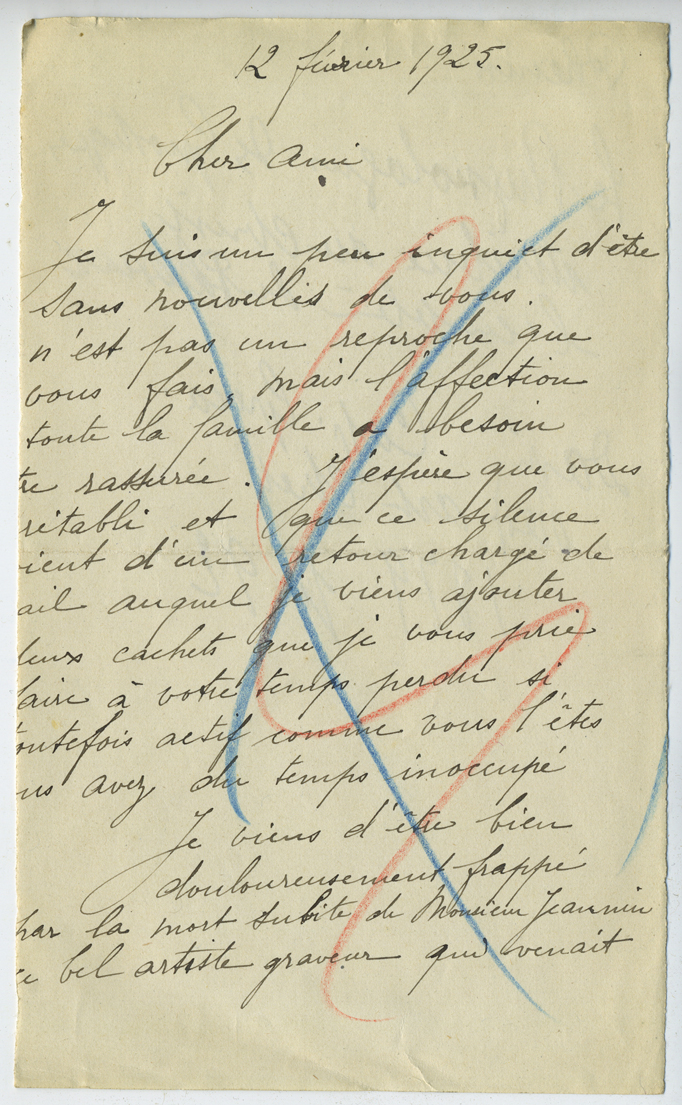 12 février 1925.
Cher Ami
Je suis un peu inquiet d'être
sans nouvelles de vous.
n'est pas un reproche que
vous fais, mais l'affection
toute la famille a besoin
tre rassurée. J'espère que vous
rétabli et que ce silence
vient d'un retour chargé de
ail auquel je viens ajouter
deux cachets que je vous prie
faire à votre temps perdu si
toutefois actif comme vous l'êtes
us avez du temps inoccupé
Je viens d'être bien
douloureusement frappé
par la mort subite de Monsieur Jeannin
ce bel artiste graveur qui venait